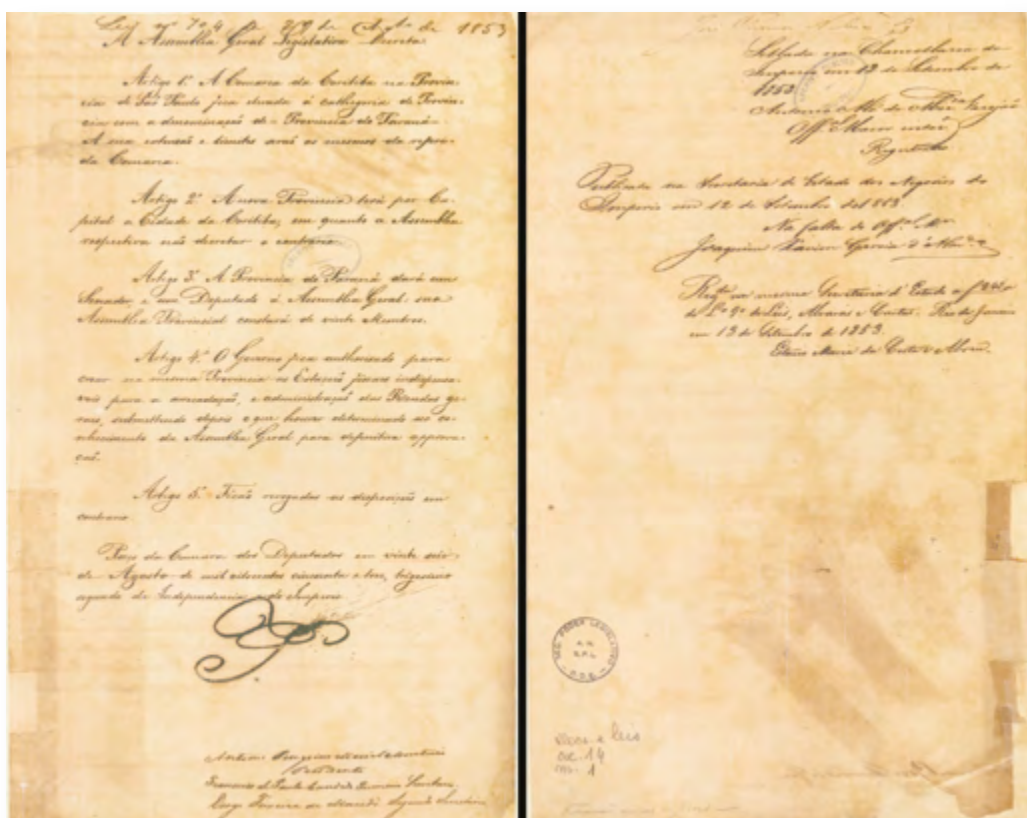 Lei nº 704 de 29 de Agto de 1853
A Assemblea Geral Legislativa Decreta
Artigo 1º A Comarca da Coritiba na Provin-
cia de São Paulo fica elevada á cathegoria de Provin-
cia com a denominação de - Provincia do Paraná -
A sua extensão e limites serão os mesmos da referi-
da Comarca.
Artigo 2º A nova Provincia terá por Ca-
pital a Cidade da Coritiba, em quanto a Assemblea
respectiva não decretar o contrario.
Artigo 3º A Provincia do Paraná dará um
Senador, e um Deputado á Assemblea Geral: sua
Assemblea Provincial constará de vinte Membros.
Artigo 4º O Governo fica authorisado para
crear na mesma Provincia as Estações fiscaes indispensa-
veis para a arrecadação, e administração das Rendas ge-
raes, submettendo depois o que houver determinado ao co-
nhecimento da Assemblea Geral para definitiva approva-
ção.
Artigo 5º Ficão revogadas as disposições em
contrario.
Paço da Camara dos Deputados em vinte seis
de Agosto de mil oitocentos cincoenta e tres, trigesimo
segundo da Independencia e do Imperio
Presidente
Sellada na Chancellaria do
Imperio em 13 de Setembro de
1853
Offal Maior interº
Registrada
Publicada na Secretaria de Estado dos Negocios do
Imperio em 12 de Setembro de 1853
Na falta do Offal Mor
Joaquim Xavier Garcia d'Almda
Regda na mesma Secretaria d'Estado a f
do Lº 9º de Leis, Alvarás e Cartas. Rio de Janeiro
em 13 de Setembro de 1853.
SEÇ. PODER LEGISLATIVO
leis
1